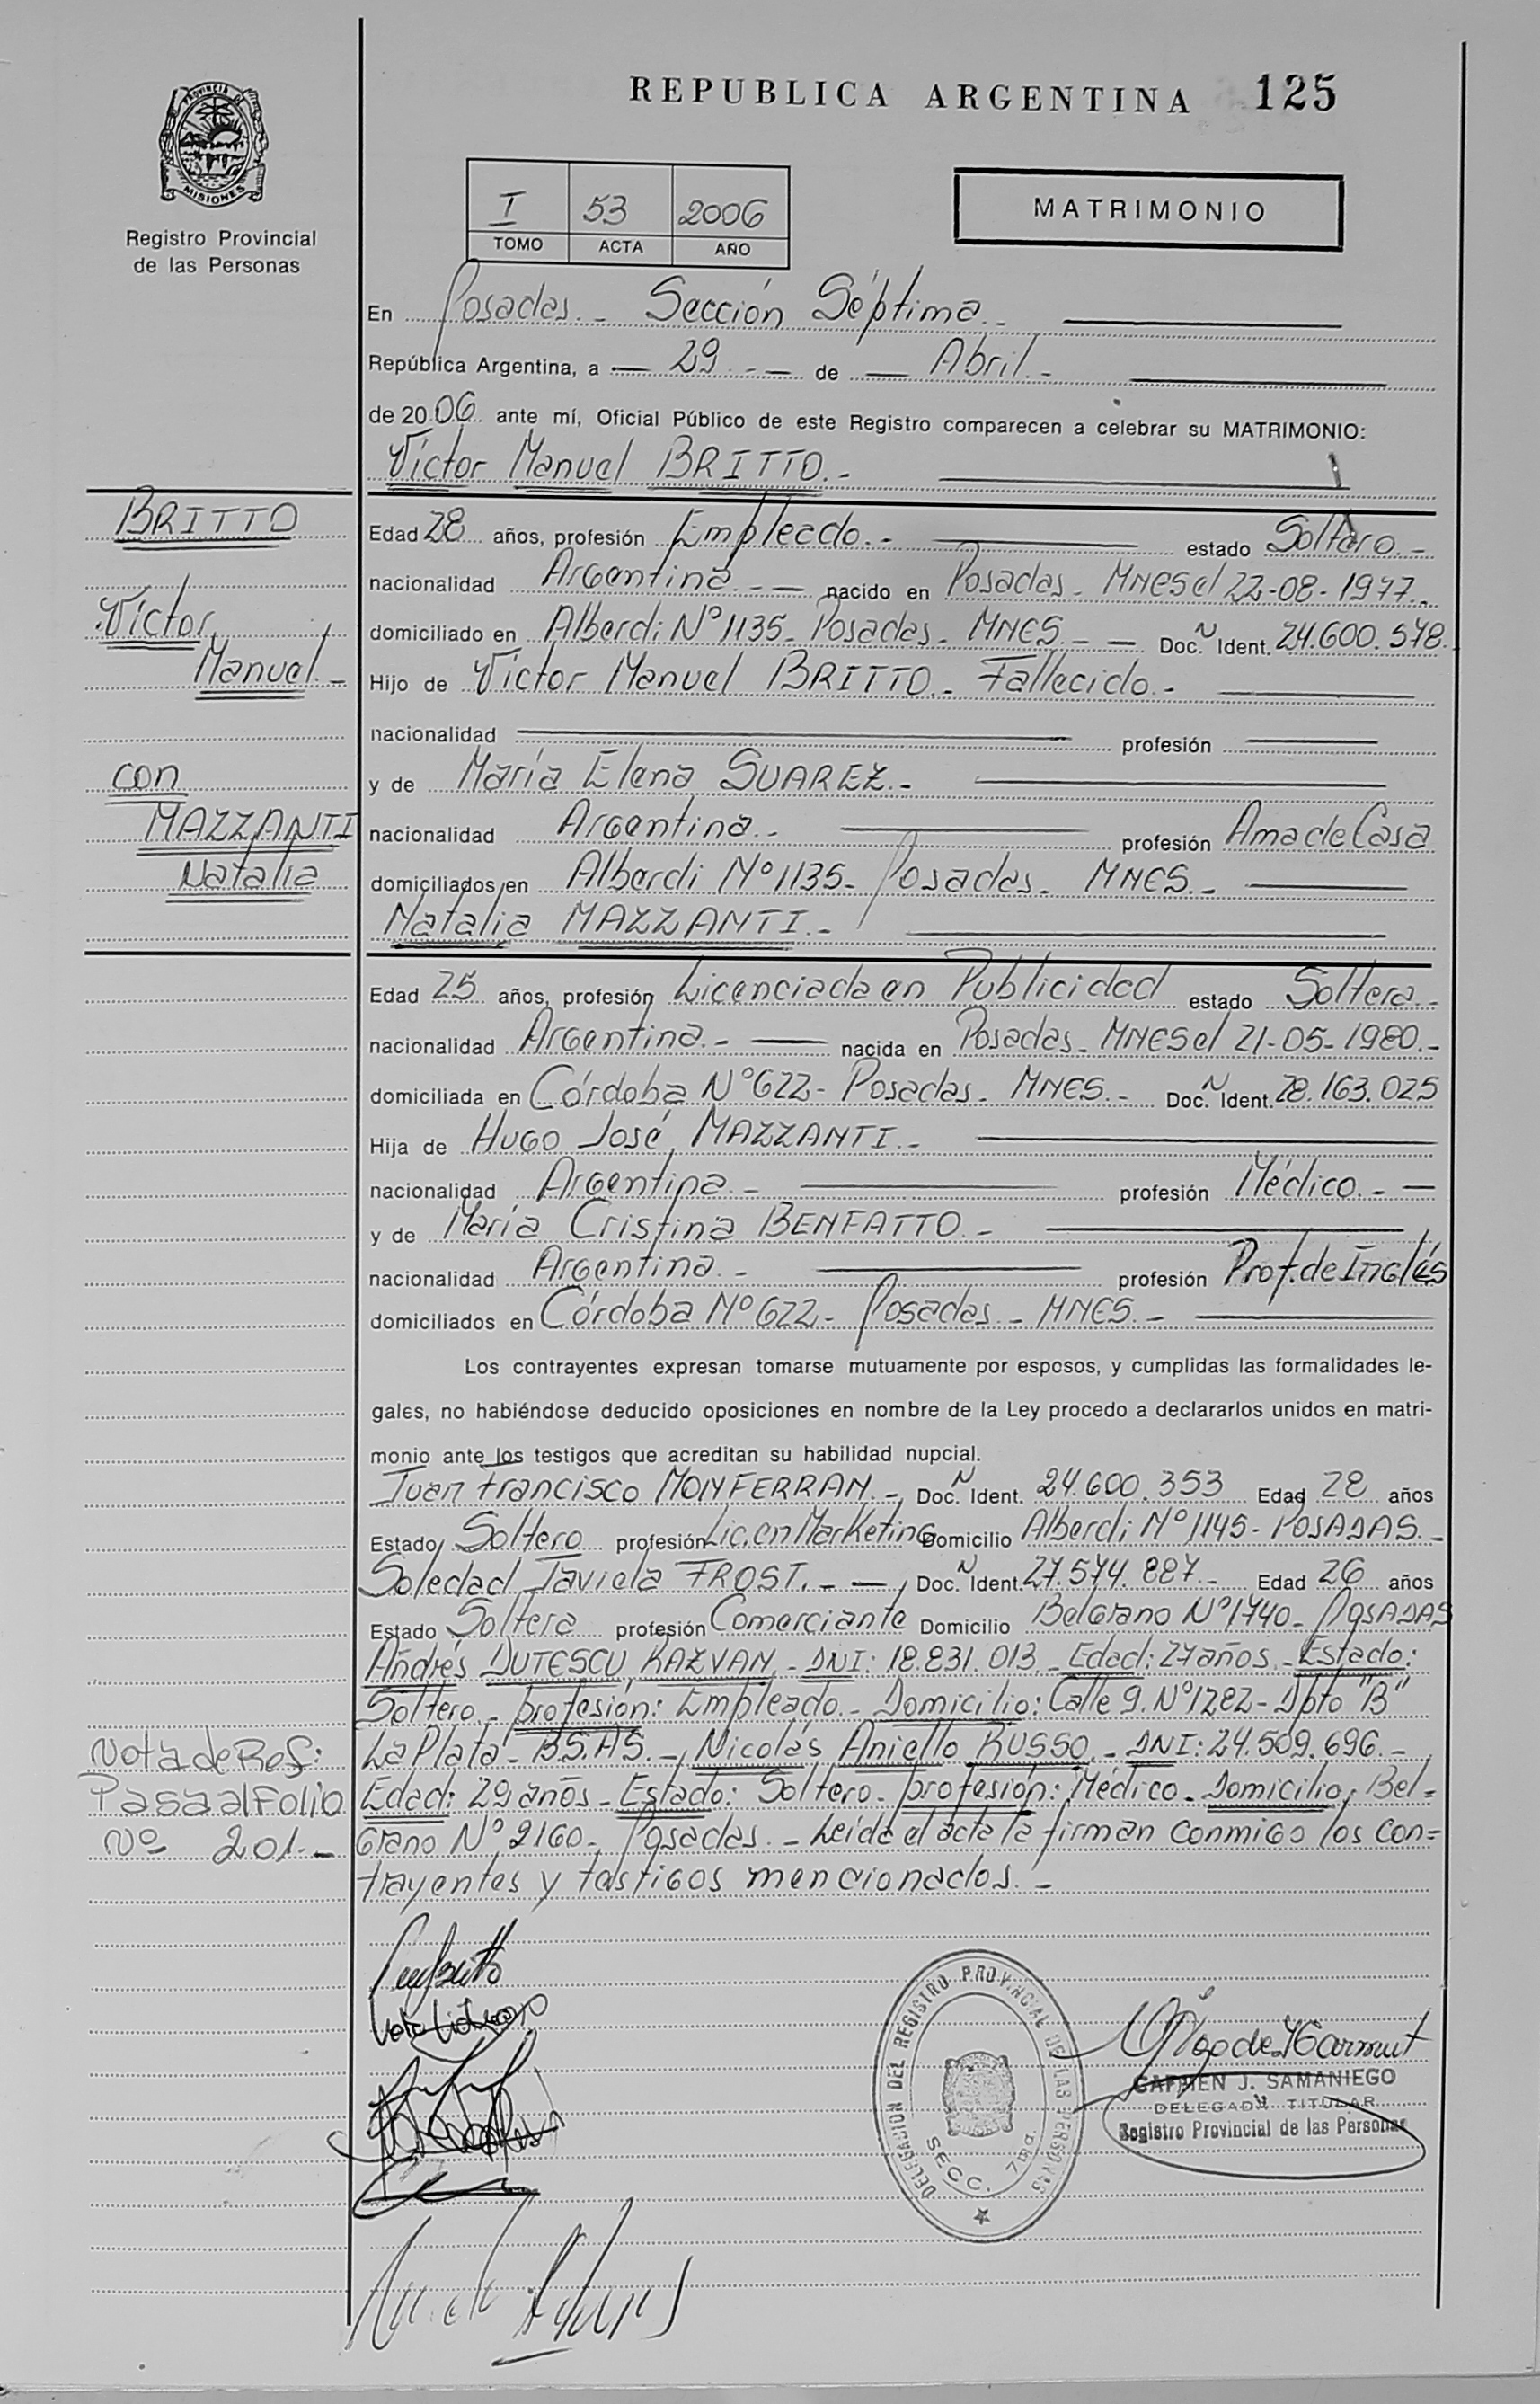 REPUBLICA ARGENTINA 125
PROVINCIA DE
MISIONES
Registro Provincial
de las Personas
I 53 2006
TOMO ACTA AÑO
MATRIMONIO
En Posadas.- Sección Séptima.-
República Argentina, a 29.- de Abril.-
de 2006 ante mí, Oficial Público de este Registro comparecen a celebrar su MATRIMONIO:
Víctor Manuel BRITTO.-
BRITTO
Víctor
Manuel.-
con
MAZZANTI
Natalia
Edad 28 años, profesión Empleado.- estado Soltero.-
nacionalidad Argentina.- nacido en Posadas- MNES el 22-08-1977.-
domiciliado en Alberdi N° 1135- Posadas- MNES.- Doc. N Ident. 24.600.578.
Hijo de Víctor Manuel BRITTO.- Fallecido.-
nacionalidad profesión
y de María Elena SUAREZ.-
nacionalidad Argentina.- profesión Ama de Casa
domiciliados en Alberdi N° 1135- Posadas- MNES.-
Natalia MAZZANTI.-
Edad 25 años, profesión Licenciada en Publicidad estado Soltera.-
nacionalidad Argentina.- nacida en Posadas- MNES el 21-05-1980.-
domiciliada en Córdoba N° 622- Posadas- MNES.- Doc. N Ident. 28.163.025
Hija de Hugo José MAZZANTI.-
nacionalidad Argentina.- profesión Médico.-
y de María Cristina BENFATTO.-
nacionalidad Argentina.- profesión Prof. de Inglés
domiciliados en Córdoba N° 622- Posadas.- MNES.-
Los contrayentes expresan tomarse mutuamente por esposos, y cumplidas las formalidades le-
gales, no habiéndose deducido oposiciones en nombre de la Ley procedo a declararlos unidos en matri-
monio ante los testigos que acreditan su habilidad nupcial.
Juan Francisco MONFERRAN.- Doc. N Ident. 24.600.353 Edad 28 años
Estado Soltero profesión Lic. en Marketing Domicilio Alberdi N° 1145- POSADAS.-
Soledad Taviela FROST.- Doc. N Ident. 27.574.887.- Edad 26 años
Estado Soltera profesión Comerciante Domicilio Belgrano N° 1740- POSADAS
Andrés DUTESCU RAZVAN.- DNI: 18.831.013- Edad: 27 años.- Estado:
Soltero- profesión: Empleado.- Domicilio: Calle 9. N° 1282- Dpto "B"
La Plata- BS.AS.- Nicolás Aniello RUSSO.- DNI: 24.509.696.-
Edad: 29 años- Estado: Soltero- profesión: Médico- Domicilio: Bel=
grano N° 2160- Posadas.- Leída el acta la firman conmigo los con=
trayentes y testigos mencionados.-
Nota de Ref:
Pasa al Folio
N° 201.-
DELEGACION DEL REGISTRO PROVINCIAL DE LAS PERSONAS
SECC. 7ma.
CARMEN J. SAMANIEGO
DELEGADA TITULAR
Registro Provincial de las Personas